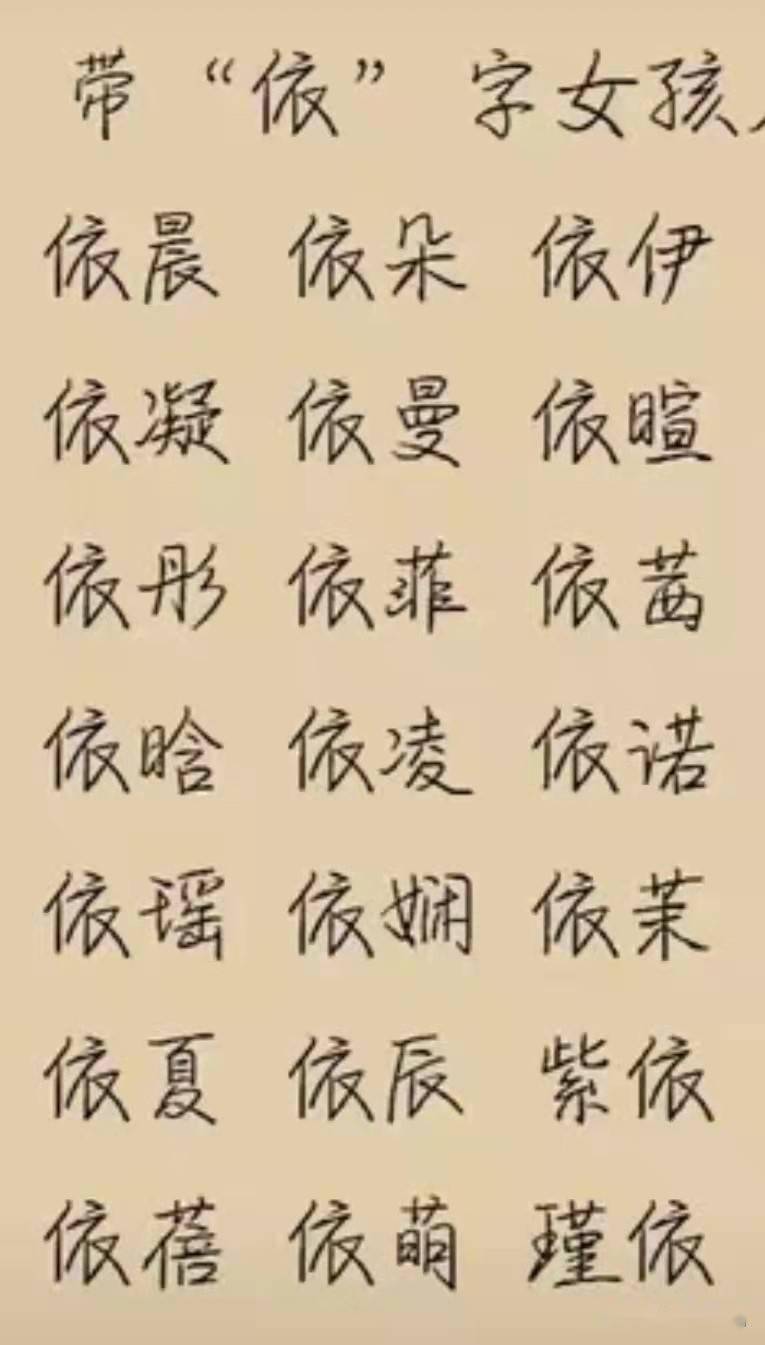 带“依”字女孩
依晨 依朵 依伊
依凝 依曼 依暄
依彤 依菲 依茜
依晗 依凌 依诺
依瑶 依娴 依茉
依夏 依辰 紫依
依蓓 依萌 瑾依